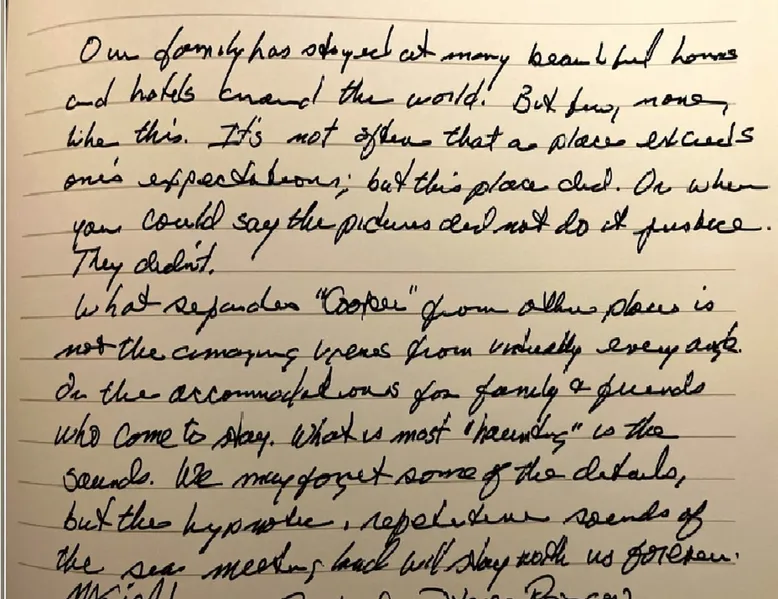 Our family has stayed at many beautiful homes
and hotels around the world. But few, none,
like this. It's not often that a place exceeds
one's expectations; but this place did. Or when
you could say the pictures did not do it justice.
They didn't.
What separates "Cooper" from other places is
not the amazing views from virtually every angle.
Or the accommodations for family & friends
who come to stay. What is most "haunting" is the
sounds. We may forget some of the details,
but the hypnotic, repetitive sounds of
the sea meeting land will stay with us forever.